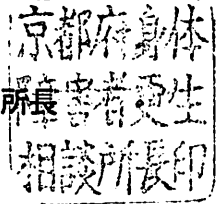 京都府身体
障害者更生
相談所長印
所長